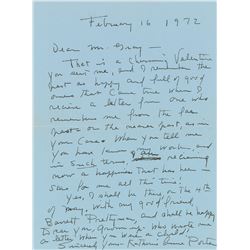 February 16 1972
Dear Mr. Gray —
That is a charming Valentine
you sent me, and I remember the
past as happy and full of good
news that came true when I
receive a letter from one who
remembers me from the far
past or the nearer past, as in
your case. When you tell me
you have known my work, and
in such terms, I am receiving
now a happiness that has been in
store for me all this time!
Yes, I shall be there, on the 4th
of May. With my good friend,
Barrett Prettyman, and shall be happy
to see you, growing, who wrote me
a letter when you were a child!
Sincerely yours Katherine Anne Porter